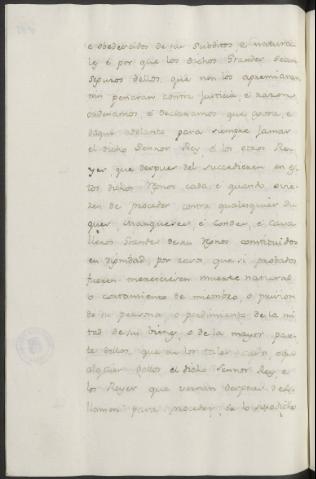 e obedecidos de sus subditos e natura
les é por que los dichos Grandes sean
seguros dellos, que non los apremiaran
nin penaran contra justicia é razon
ordenamos, é declaramos que agora, e
daqui adelante para siempre jamas
el dicho Sennor Rey, é los otros Re
yes que despues del succedieren en es
tos dichos Rynos cada, é quando ovie
ren de proceder contra qualesquier Du
ques, Marqueses, é Condes, é Cava
lleros Grandes de sus Rynos constituidos
en dignidad, por cosa, que si probados
fuesen merescieren muerte natural
o cortamiento de miembro, o prision
de su persona, o perdimiento de la mi
tad de sus bienes, o de la mayor par
te dellos, que en los tales casos, o en
alguno dellos el dicho Sennor Rey, e
los Reyes que vernan despues del
llamen para proceder, de lo susodicho